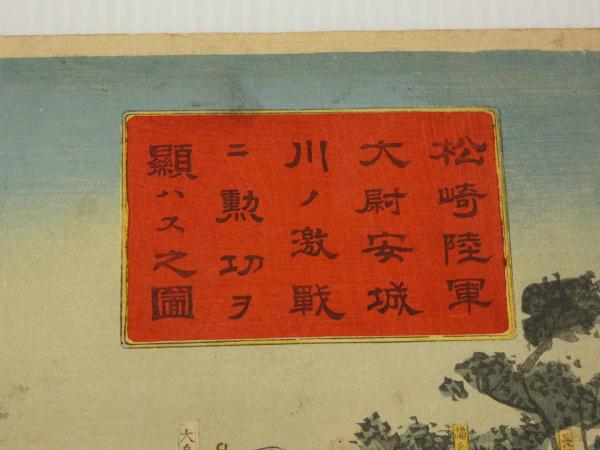 松崎陸軍
大尉安城
川ノ激戰
ニ勲功ヲ
顯ハス之圖